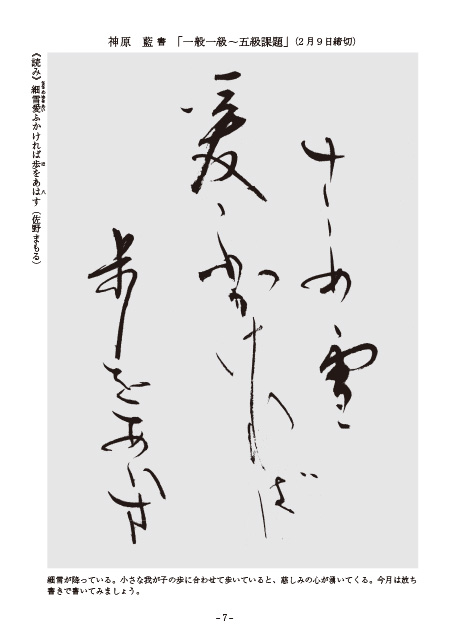 神原 藍 書 「一般一級～五級課題」(2月9日締切)
さゝめ雪
愛ふかければ
歩をあはす
《読み》細雪愛ふかければ歩をあはす (佐野まもる)
細雪が降っている。小さな我が子の歩に合わせて歩いていると、慈しみの心が湧いてくる。今月は放ち
書きで書いてみましょう。
- 7 -